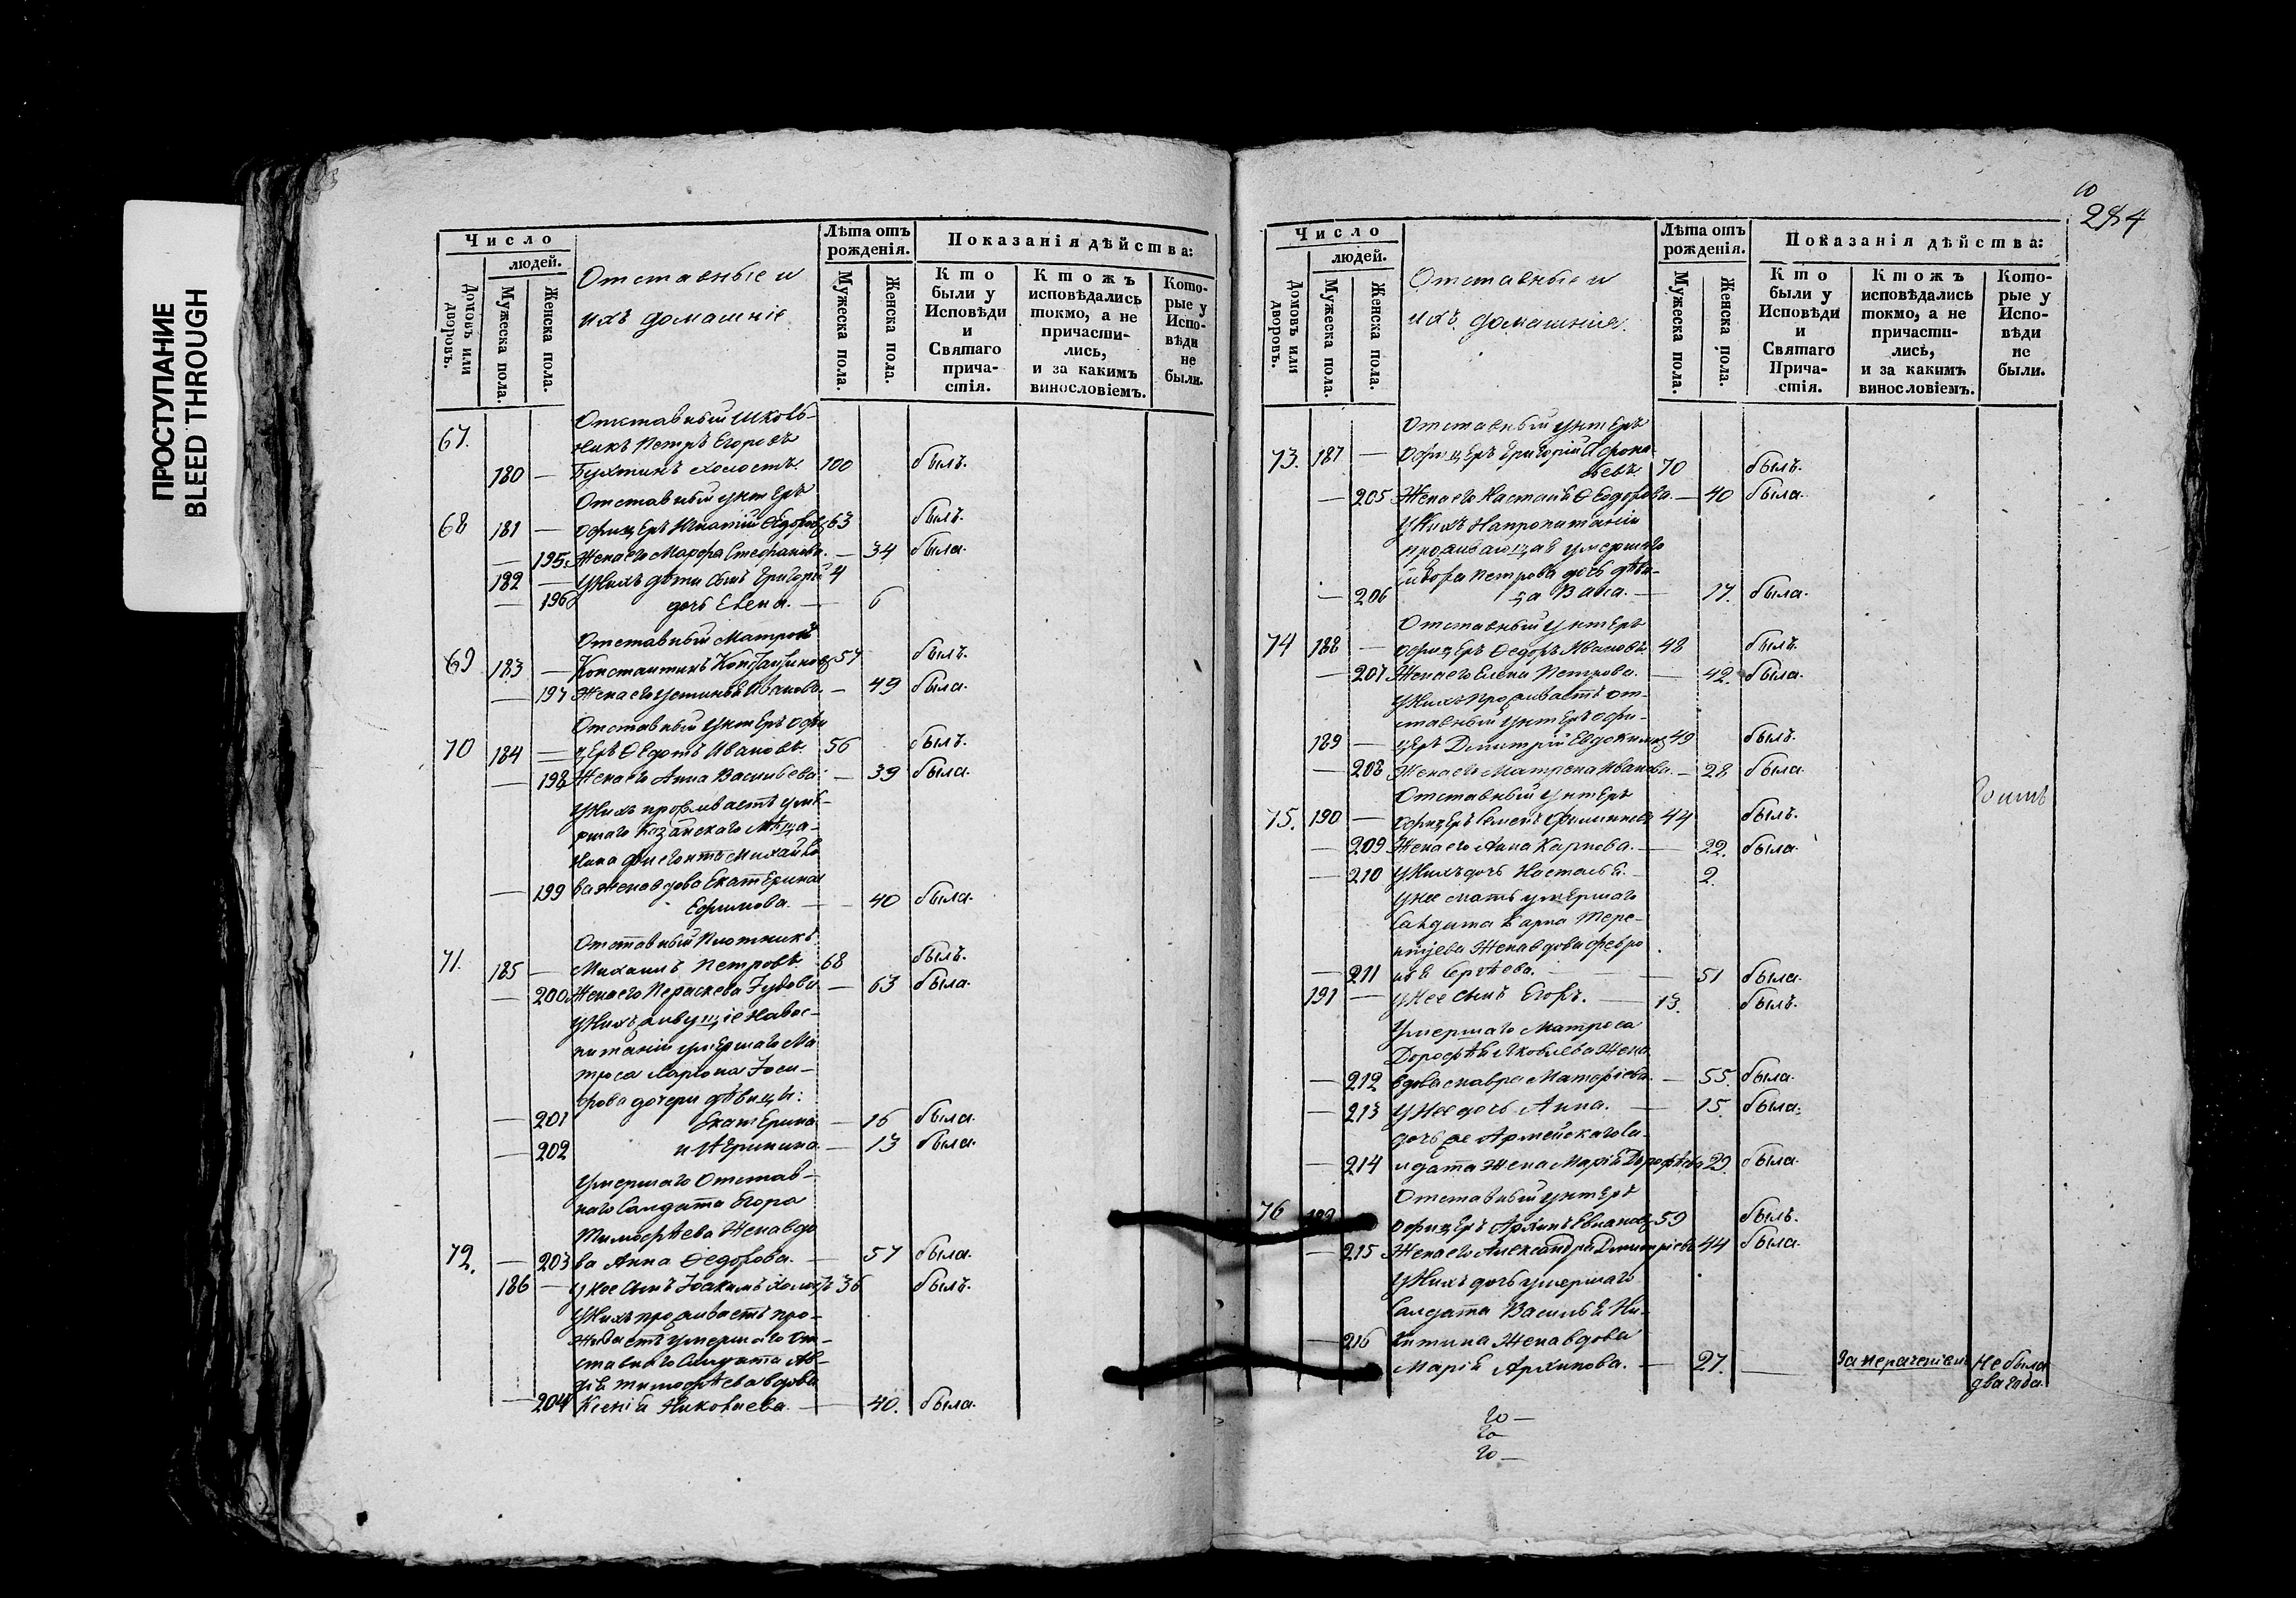 ПРОСТУПАНИЕ
BLEED THROUGH
Число
людей.
Домовъ или дворовъ.
Мужеска пола.
Женска пола.
Отставные и
ихъ домашніе
Лѣта отъ рожденія.
Мужеска пола.
Женска пола.
Показанія дѣйства:
Кто были у Исповѣди и Святаго прича-стія.
Ктожъ исповѣдались токмо, а не причасти-лись, и за какимъ винословіемъ.
Кото-рые у Испо-вѣди не были.
Отставный
67. никъ Петръ Егоровъ
180 — холостъ. 100 былъ.
Отставный унтеръ
68 181 — офицеръ Игнатій Ѳедоровъ 63 былъ.
— 195. Жена его Марфа Стефанова. — 34 была.
182 — У нихъ дѣти сынъ Григорій 4
— 196 дочь Елена. — 6
Отставный Матрозъ
69 183 — Константинъ 57 былъ.
— 197 Жена его Устинья Иванова. — 49 была.
Отставный унтеръ офи
70 184 — церъ Ѳедотъ Ивановъ. 56 былъ.
— 198 Жена его Анна Васильева: — 39 была.
У нихъ проживаетъ уме-
ршаго Казанскаго Мѣща-
нина Михайло
— 199 ва жена вдова Екатерина
Ефимова. — 40 была.
Отставный Плотникъ
71. 185 — Михаилъ Петровъ. 68 былъ.
— 200 Жена его Параскева — 63 была.
У нихъ живущіе на вос-
питаніи умершаго Ма
троса Ларіона
дочери дѣвицы:
— 201 Екатерина — 16 была.
— 202 и — 13 была.
Умершаго Отстав-
наго Салдата Егора
Тимофѣева Жена вдо
72. — 203 ва Анна Ѳедорова. — 57 была.
186 — у нее сынъ Іоакимъ холостъ 36 былъ.
У нихъ проживаетъ про-
живаетъ умершаго От-
ставнаго Салдата Ав-
дія Тимофѣева вдова
— 204 Ксенія Николаева. — 40. была.
10
284
Число
людей.
Домовъ или дворовъ.
Мужеска пола.
Женска пола.
Отставные и
ихъ домашнія.
Лѣта отъ рожденія.
Мужеска пола.
Женска пола.
Показанія дѣйства:
Кто были у Исповѣди и Святаго Прича-стія.
Ктожъ исповѣдались токмо, а не причасти-лись, и за какимъ винословіемъ.
Кото-рые у Испо-вѣди не были.
Отставный унтеръ
73. 187 — офицеръ Григорій Афона
сьевъ 70 былъ.
— 205 Жена его Настасья Ѳеодорова. — 40 была.
У нихъ на пропитаніи
проживающая умершаго
Петрова дочь дѣви-
— 206 ца Васса. — 17. была.
Отставный унтеръ
74 188 — офицеръ Ѳедоръ Ивановъ. 48 былъ.
— 207 Жена его Елена Петрова. — 42. была.
У нихъ проживаетъ от-
ставный унтеръ офи-
189 — церъ Димитрій Евдокимовъ 49 былъ.
— 208 Жена его Матрена Иванова. — 28 была.
Отставный унтеръ
75. 190 — офицеръ Семенъ Филиповъ 44 былъ.
— 209 Жена его Анна Карпова. — 22. была.
— 210 У нихъ дочь Настасья. — 2.
У нее мать умершаго
Салдата Карпа Тере-
нтьева Жена вдова Февро
— 211 нья Сергѣева. — 51 была.
191 — У нее сынъ Егоръ. — 13. былъ.
Умершаго Матроса
Дорофѣя Яковлева Жена
— 212 вдова Мавра Матфіева. — 55. была.
— 213 У нее дочь Анна. — 15. была.
дочь же Армейскаго Са-
— 214 лдата Жена Марія Дорофѣева 29. была.
Отставный унтеръ
76 192 офицеръ Архипъ 59 былъ.
— 215 Жена его Александра Димитріева 44 была.
У нихъ дочь умершаго
Салдата Василья Ни-
— 216 китина Жена вдова
Марія Архипова. — 27. — За нераченіемъ Не была
два года.